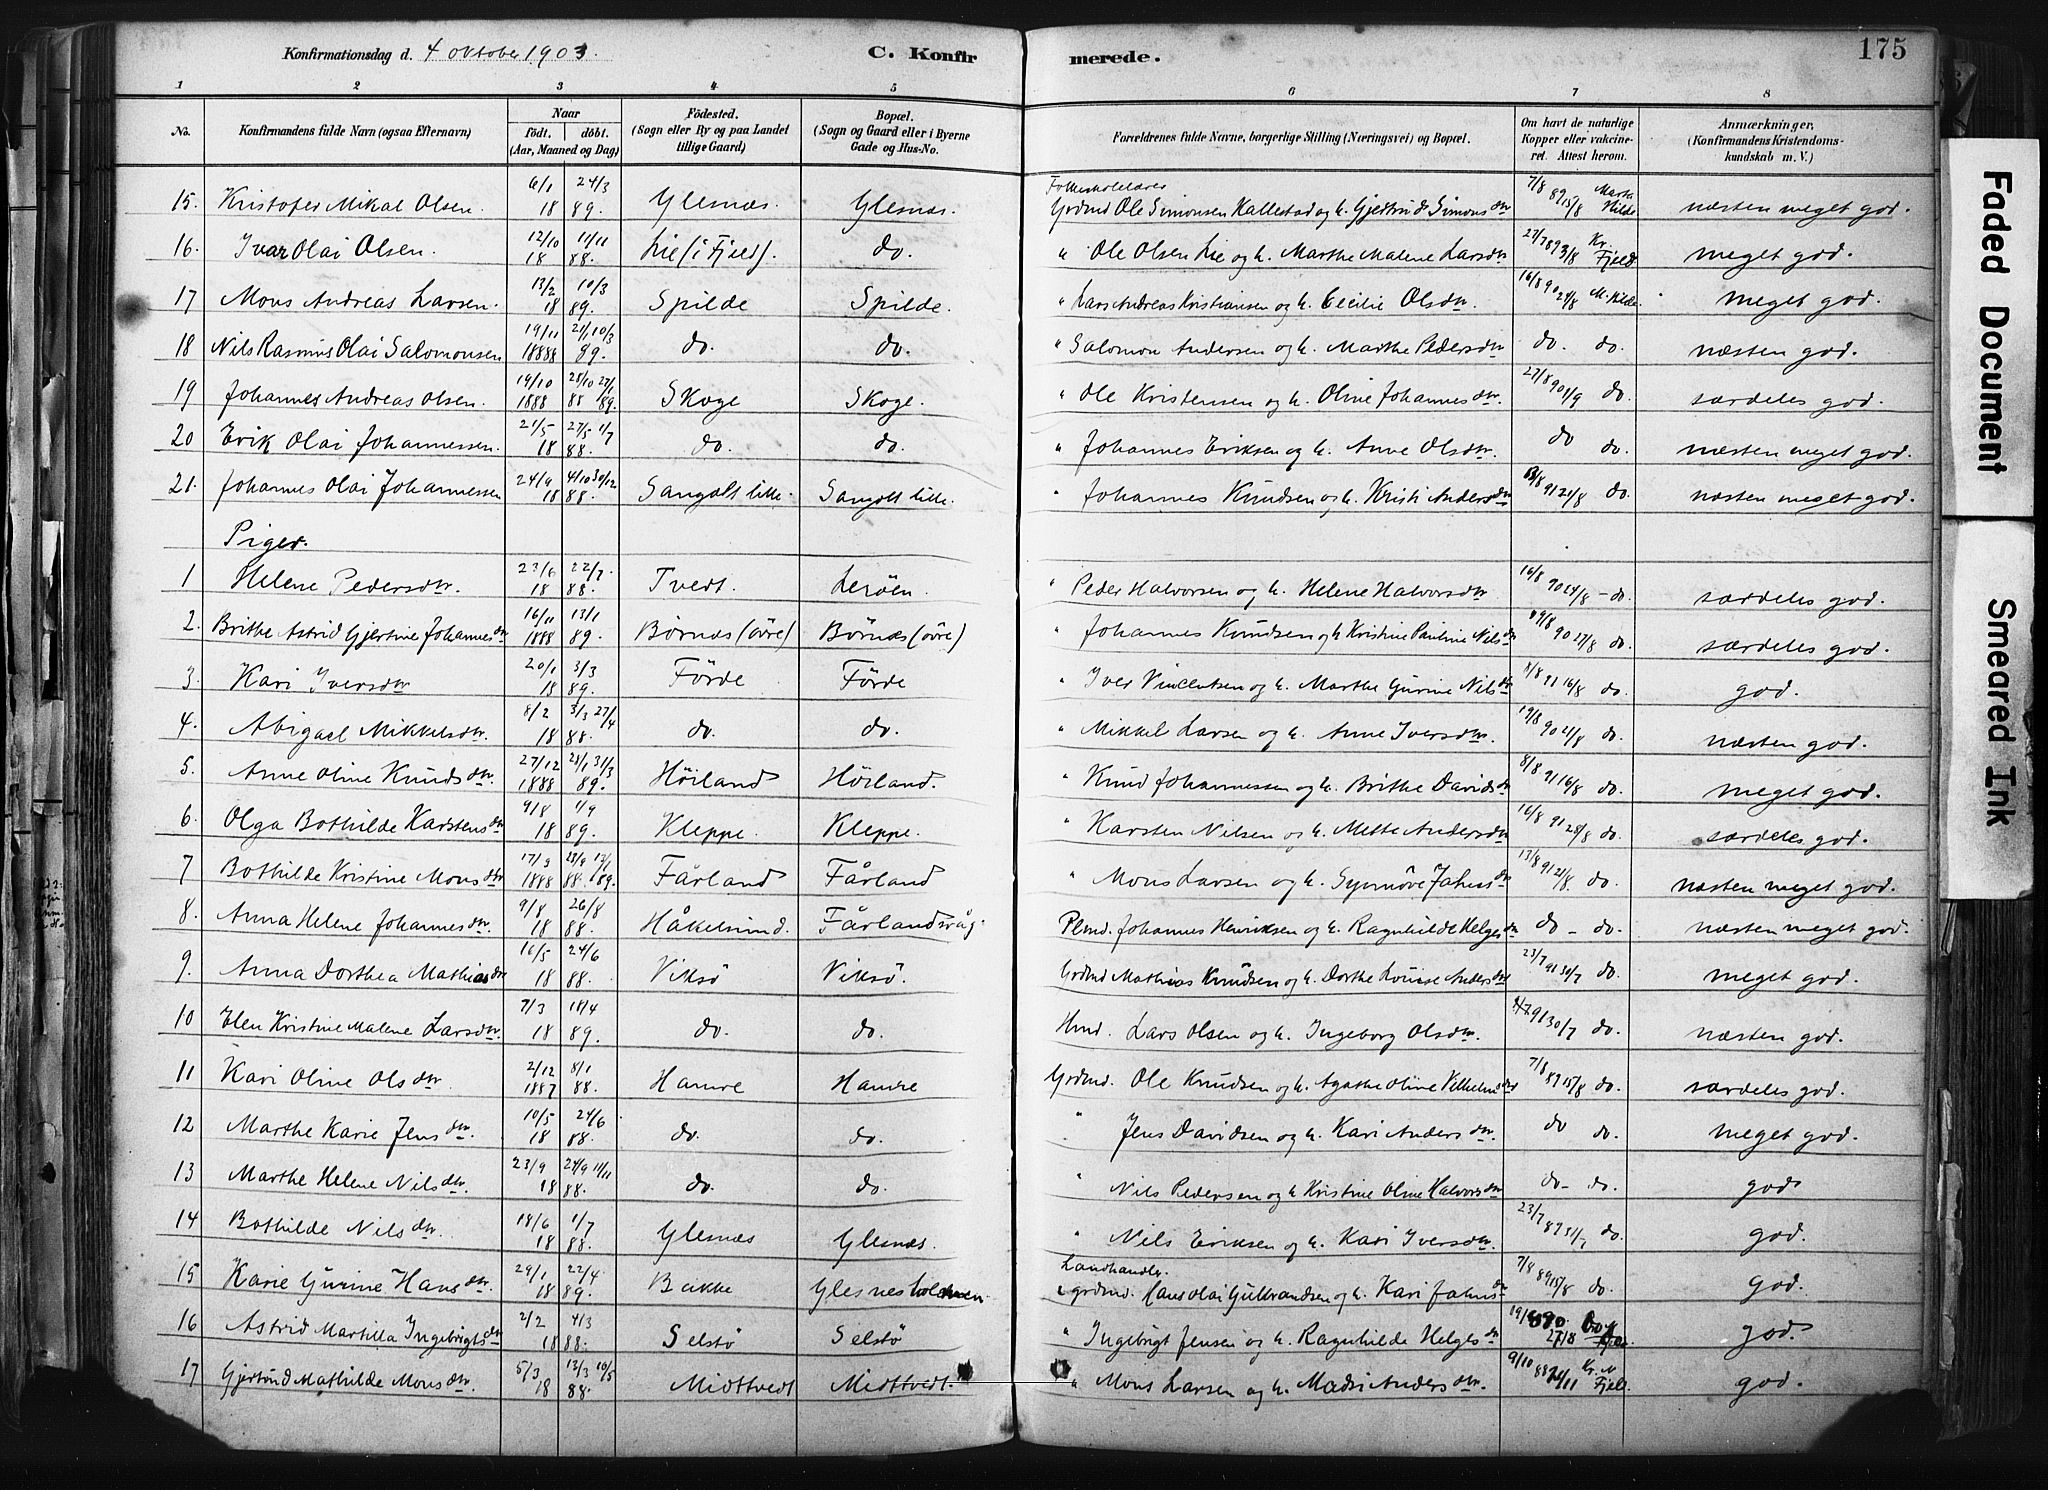 Konfirmationsdag d. 4 oktober 1903. C. Konfirmerede. 175
1 2 3 4 5 6 7 8
No. Konfirmandens fulde Navn (ogsaa Efternavn) Naar Født. døbt. (Aar, Maaned og Dag) Födested. (Sogn eller By og paa Landet tillige Gaard) Bopæl. (Sogn og Gaard eller i Byerne Gade og Hus-No. Forældrenes fulde Navne, borgerlige Stilling (Næringsvei) og Bopæl. Om havt de naturlige Kopper eller vakcineret. Attest herom. Anmærkninger, (Konfirmandens Kristendomskundskab m. V.)
15. Kristofer Mikal Olsen. 6/1 18 24/3 89. Glesnæs. Glesnæs. Folkeskolelærer Grdmd Ole Simonsen Kallestad og h. Gjertrud Simonsdtr 7/8 89 15/8 næsten meget god.
16. Ivar Olai Olsen. 12/10 18 11/11 88. Lie (i Fjeld). do. " Ole Olsen Lie og h. Marthe Malene Larsdtr Kr. Fjeld meget god.
17 Mons Andreas Larsen. 13/2 18 10/3 89. Spilde Spilde. " Lars Andreas Kristiansen og h. Cecilie Olsdtr. 16/8 90 24/8 M. Hilde meget god.
18 Nils Rasmus Olai Salomonsen 19/11 1888 21/11 10/3 89. do. do. " Salomon Andersen og h. Marthe Pedersdtr do. do. næsten god.
19 Johannes Andreas Olsen. 19/10 1888 28/10 88 27/1 89. Skoge Skoge. " Ole Kristensen og h. Oline Johannesdtr. 27/8 90 1/9 do. særdeles god.
20 Erik Olai Johannessen. 21/5 18 27/5 1/7 88. do. do. " Johannes Eriksen og h. Anne Olsdtr. do do. næsten meget god.
21. Johannes Olai Johannessen 24/9 18 4/10 30/12 88. Sangolt lille. Sangolt lille. " Johannes Knudsen og h. Kristi Andersdtr 91 21/8 do. næsten meget god.
Piger.
1 Helene Pedersdtr. 23/6 18 22/7 88. Tvedt. Lerøen. " Peder Halvorsen og h. Helene Halvorsdtr 16/8 90 24/8 - do. særdeles god.
2. Brithe Astrid Gjertine Johannesdtr 16/11 1888 13/1 89. Børnæs (øvre) Børnæs (øvre) " Johannes Knudsen og h Kristine Pauline Nilsdtr 90 27/8 do. særdeles god.
3. Kari Iversdtr 20/1 18 3/3 89. Førde Førde " Iver Vincentsen og h. Marthe Gurine Nilsdtr 8/8 91 16/8 do. god.
4. Abigael Mikkelsdtr. 8/2 18 3/3 27/4 88. do. do. " Mikkel Larsen og h. Anne Iversdtr. 19/8 90 21/8 do. næsten god.
5. Anne Oline Knudsdtr. 27/12 1888 28/1 31/3 89. Høiland Høiland. " Knud Johannessen og h. Brithe Davidsdtr 8/8 91 16/8 do. meget god.
6. Olga Bothilde Karstensdtr 9/8 18 89. Kleppe. Kleppe. " Karsten Nilsen og h. Mette Andersdtr 16/8 91 28/8 do. særdeles god.
7 Bothilde Kristine Monsdtr 17/9 1888 23/9 88. 13/1 89. Fårland Fårland " Mons Larsen og h. Synnøve Jahnsdtr 13/8 91 21/8. do. næsten meget god.
8. Anna Helene Johannesdtr. 9/8 18 26/8 88. Håkelsund. Fårlandsvåg. Plmd. Johannes Henriksen og h. Ragnhilde Helgesdtr do - do. næsten meget god.
9. Anna Dorthea Mathiasdtr 16/5 18 24/6 88. Viksø Viksø. Grdmd Mathias Knudsen og h. Dorthe Louise Andersdtr 23/7 91 30/7 do. meget god.
10 Elen Kristine Malene Larsdtr. 7/3 18 18/4 89. do. do. Hmd. Lars Olsen og h. Ingeborg Olsdtr. 91 30/7 do. næsten god.
11 Kari Oline Olsdtr. 2/12 1887 8/1 88. Hamre Hamre Grdmd. Ole Knudsen og h. Agathe Oline Vilhelmsdtr 7/8 89 15/8 do. særdeles god.
12 Marthe Karie Jensdtr. 10/5 18 24/6 88. do. do. " Jens Davidsen og h. Kari Andersdtr. do do. meget god.
13 Marthe Helene Nilsdtr. 23/9 18 29/9 11/11 88. do. do. " Nils Pedersen og h Kristine Oline Halvorsdtr do- do. god
14 Bothilde Nilsdtr. 18/6 18 1/7 88. Glesnæs Glesnæs. " Nils Eriksen og h. Kari Iversdtr. 23/7 89 31/7 do god.
15 Karie Gurine Hansdtr. 29/1 18 22/4 89. Bakke Glesnesholmen. Landhandler. & grdmd. Hans Olai Gulbrandsen og h. Kari Jahnsdtr 7/8 89 15/8 do. god.
16 Astrid Martilla Ingebrigtsdtr 2/2 18 4/3 88. Selstø Selstø " Ingebrigt Jensen og h. Ragnhilde Helgesdtr 27/8 god.
17 Gjertrud Mathilde Monsdtr. 5/3 18 13/3 10/5 88. Midttvedt Midttvedt. " Mons Larsen og h. Madsi Andersdtr. 9/10 88 Kr. N. Fjell. god.
Faded Document
Smeared Ink